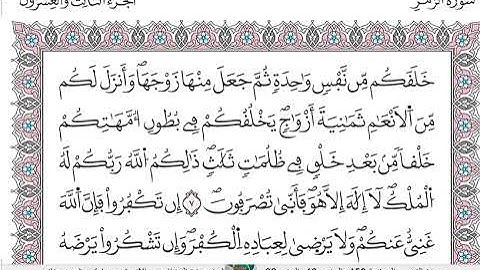 سورة الزمر الجزء الثالث والعشرون
خَلَقَكُم مِّن نَّفْسٖ وَٰحِدَةٖ ثُمَّ جَعَلَ مِنْهَا زَوْجَهَاۖ وَأَنزَلَ لَكُم
مِّنَ اَ۬لَانْعَٰمِ ثَمَٰنِيَةَ أَزْوَٰجٖۖ يَخْلُقُكُمْ فِے بُطُونِ أُمَّهَٰتِكُمْ
خَلْقاٗ مِّنۢ بَعْدِ خَلْقٖ فِے ظُلُمَٰتٖ ثَلَٰثٖۖ ذَٰلِكُمُ اُ۬للَّهُ رَبُّكُمْ لَهُ
اُ۬لْمُلْكُۖ لَآ إِلَٰهَ إِلَّا هُوَۖ فَأَنّ۪يٰ تُصْرَفُونَۖ ٧ إِن تَكْفُرُواْ فَإِنَّ اَ۬للَّهَ
غَنِيٌّ عَنكُمْۖ وَلَا يَرْضَىٰ لِعِبَادِهِ اِ۬لْكُفْرَۖ وَإِن تَشْكُرُواْ يَرْضَهُ